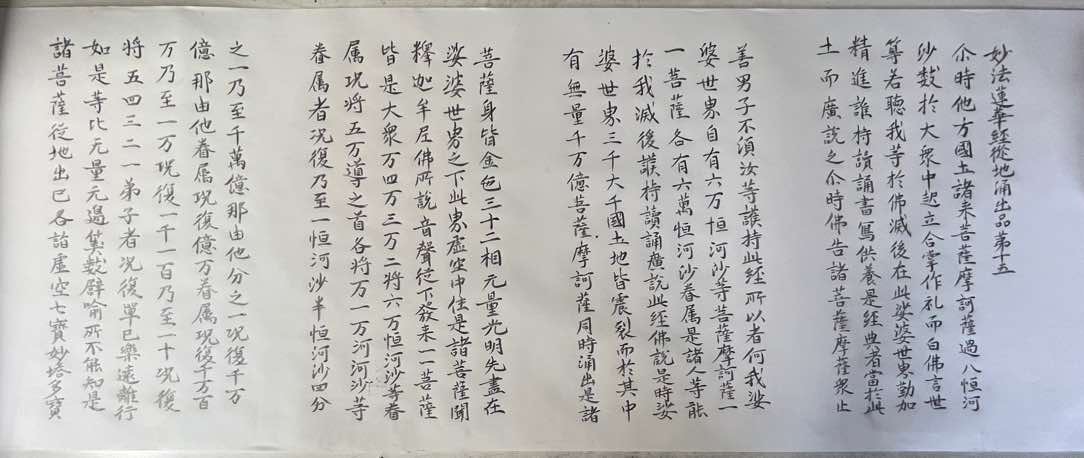 妙法蓮華經從地涌出品第十五
尒時他方國土諸来菩薩摩訶薩過八恒河
沙数於大衆中起立合掌作礼而白佛言世
尊若聽我等於佛滅後在此娑婆世界勤加
精進護持讀誦書寫供養是經典者當於此
土而廣說之尒時佛告諸菩薩摩薩衆止
善男子不須汝等護持此經所以者何我娑
婆世界自有六万恒河沙等菩薩摩訶薩一
一菩薩各有六萬恒河沙眷属是諸人等能
於我滅後護持讀誦廣說此經佛說是時娑
婆世界三千大千國土地皆震裂而於其中
有無量千万億菩薩摩訶薩同時涌出是諸
菩薩身皆金色三十二相无量光明先盡在
娑婆世界之下此界虚空中住是諸菩薩聞
釋迦牟尼佛所說音聲從下發来一一菩薩
皆是大衆万四万三万二將六万恒河沙等眷
属况將五万導之首各將万一万河河沙等
眷属者况復乃至一恒河沙半恒河沙四分
之一乃至千萬億那由他分之一况復千万
億那由他眷属况復億万眷属况復千万百
万乃至一万况復一千一百乃至一十况復
將五四三二一弟子者况復單已樂遠離行
如是等比无量无邊筭数辟喻所不能知是
諸菩薩從地出已各詣虚空七寶妙塔多寶